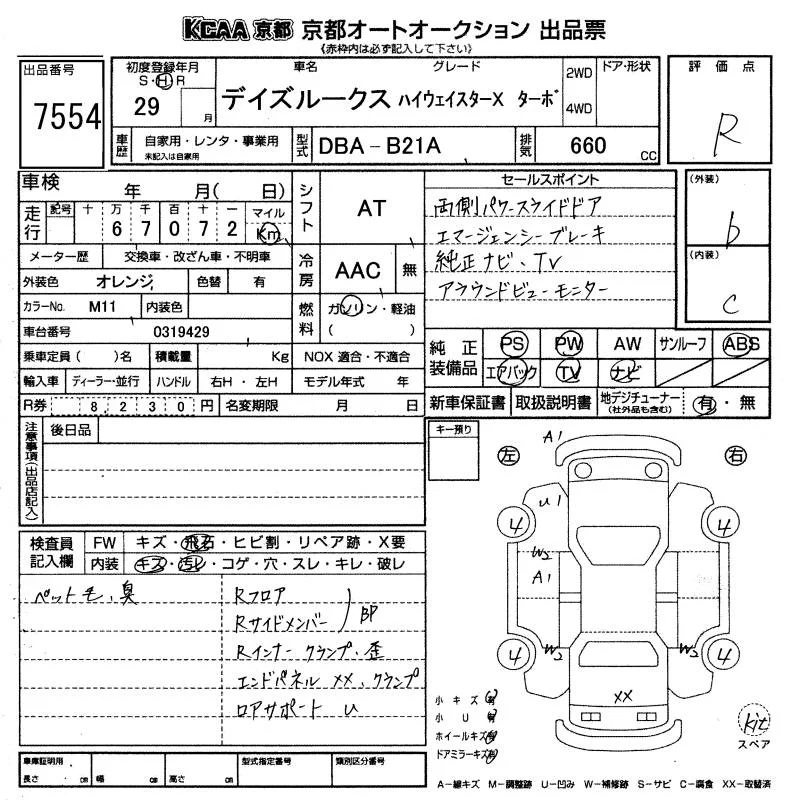 KCAA 京都 京都オートオークション 出品票
《赤枠内は必ず記入して下さい》
出品番号
7554
初度登録年月
S・H・R
29
月
車名
グレード
デイズルークス ハイウェイスターX ターボ
2WD
4WD
ドア・形状
評価点
R
車歴
自家用・レンタ・事業用
未記入は自家用
型式
DBA－B21A
排気
660
CC
車検
年 月( 日)
走行
記号 十 万 千 百 十 一
6 7 0 7 2
マイル
Km
シフト
AT
セールスポイント
両側パワースライドドア
エマージェンシーブレーキ
純正ナビ、TV
アラウンドビューモニター
(外装)
b
(内装)
c
メーター歴
交換車・改ざん車・不明車
冷房
AAC
無
外装色
オレンジ
色替
有
カラーNo.
M11
内装色
燃料
ガソリン・軽油
( )
車台番号
0319429
乗車定員( )名
積載量
Kg
NOX 適合・不適合
純正装備品
PS
PW
AW
サンルーフ
ABS
エアバック
TV
ナビ
輸入車
ディーラー・並行
ハンドル
右H・左H
モデル年式 年
R券
8,230円
名変期限 月 日
新車保証書
取扱説明書
地デジチューナー
(社外品も含む)
有・無
注意事項(出品店記入)
後日品
キー預り
左
右
A1
U1
4
4
W2
A1
4
4
W2
W2
XX
検査員記入欄
FW
キズ・飛石・ヒビ割・リペア跡・X要
内装
キズ・汚レ・コゲ・穴・スレ・キレ・破レ
ペット毛、臭
Rフロア
Rサイドメンバー
BP
Rインナー クランプ、歪
エンドパネル XX、クランプ
ロアサポート U
小キズ(有)
小U(有)
ホイールキズ(有)
ドアミラーキズ(有)
kit
スペア
車庫証明用
長さ cm
幅 cm
高さ cm
型式指定番号
類別区分番号
A－線キズ M－調整跡 U－凹み W－補修跡 S－サビ C－腐食 XX－取替済